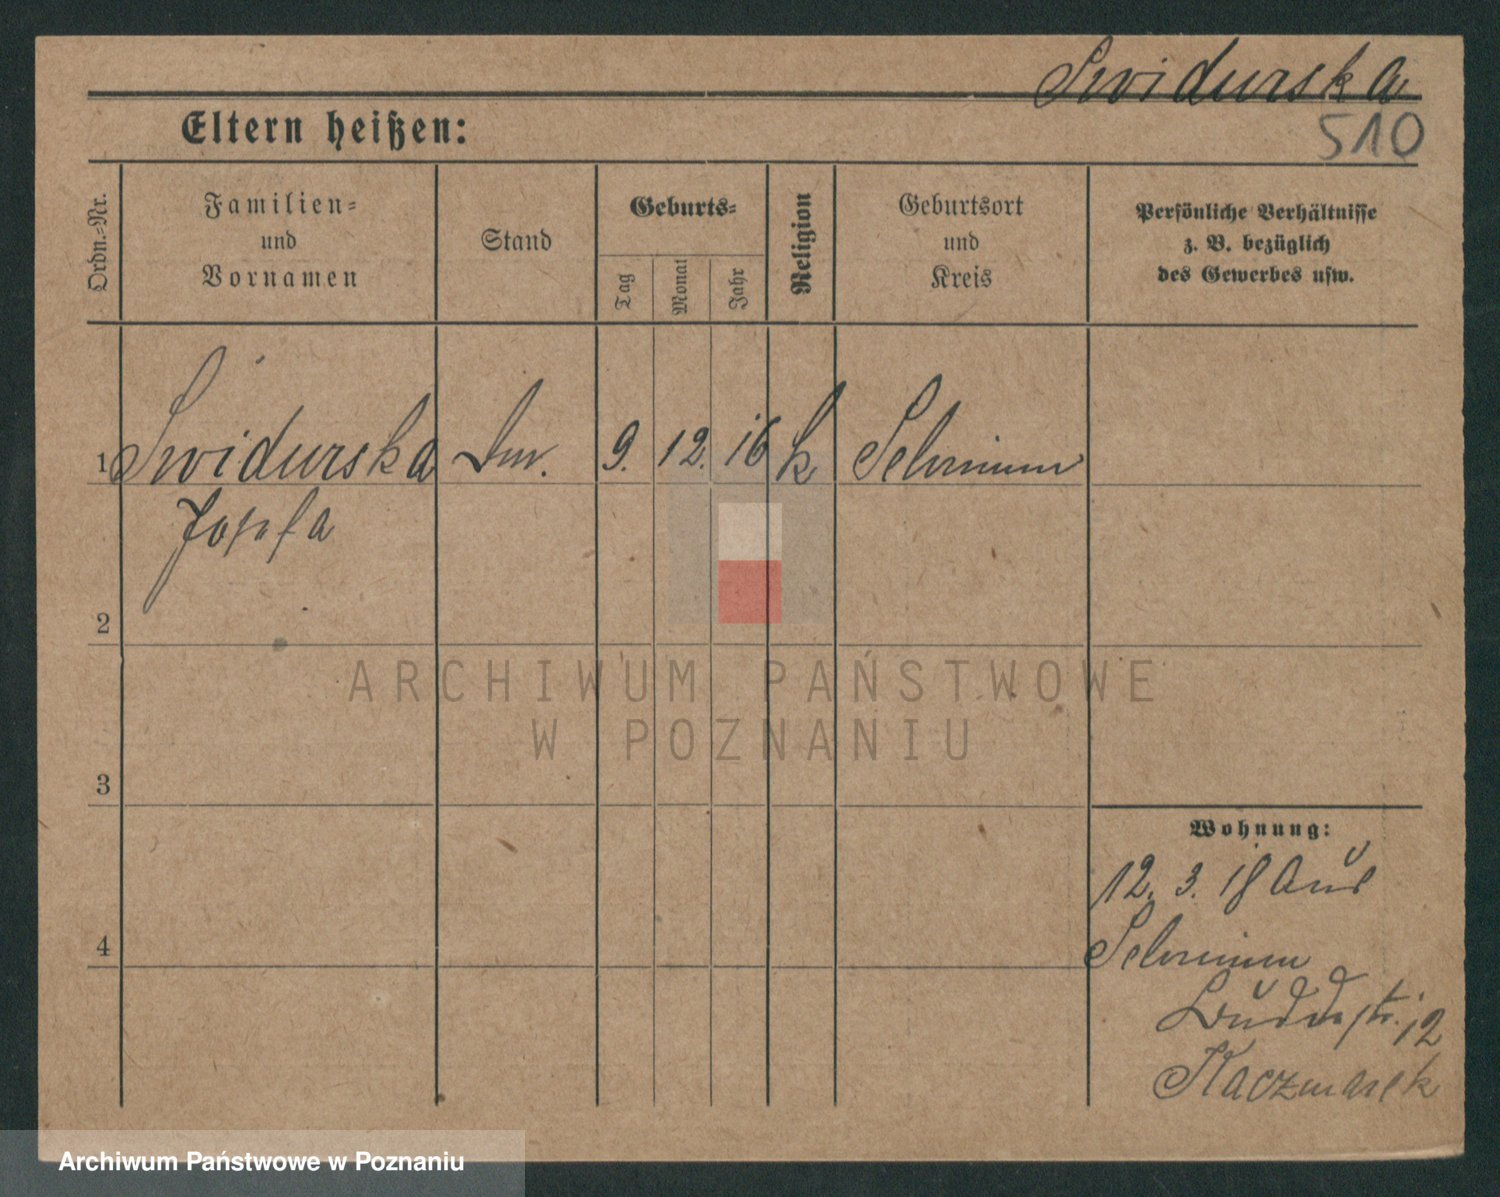 Swidurska
510
Eltern heißen:
Ordn.-Nr.
Familien-
und
Vornamen
Stand
Geburts-
Tag
Monat
Jahr
Religion
Geburtsort
und
Kreis
Persönliche Verhältnisse
z. B. bezüglich
des Gewerbes usw.
1 Swidurska 9. 12. 16 k
Josefa
2
ARCHIWUM PAŃSTWOWE
W POZNANIU
3
Wohnung:
12. 3. 18 aus
4
12
Kaczmarek
Archiwum Państwowe w Poznaniu